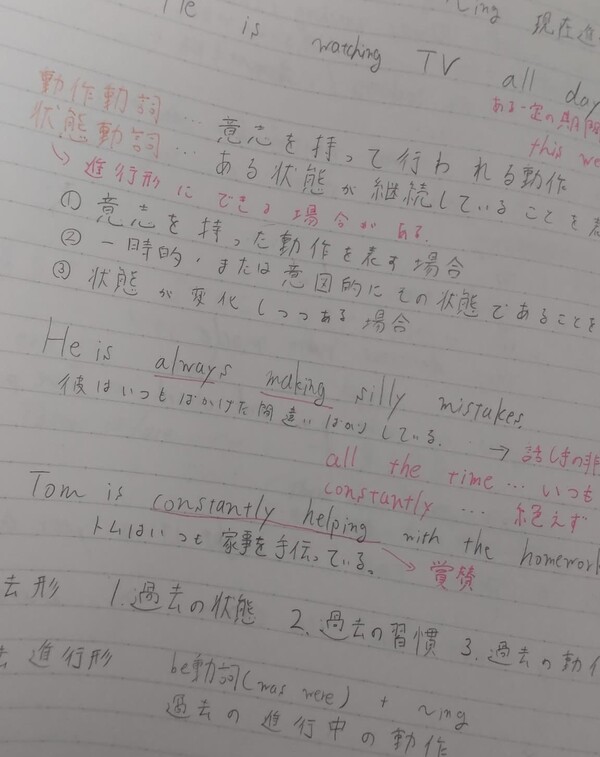 ~ing 現在進
He is watching TV all day
ある一定の期間
this we
動作動詞 … 意志を持って行われる動作
状態動詞 … ある状態が継続していることを表
↳ 進行形にできる場合がある.
① 意志を持った動作を表す場合
② 一時的,または意図的にその状態であることを
③ 状態が変化しつつある場合
He is always making silly mistakes.
彼はいつもばかげた間違いばかりしている.
→ 話し手の非
all the time … いつも
constantly … 絶えず
Tom is constantly helping with the homework
トムはいつも家事を手伝っている。
→ 賞賛
去形 1.過去の状態 2.過去の習慣 3.過去の動作
去進行形 be動詞(was were) + ~ing
過去の進行中の動作